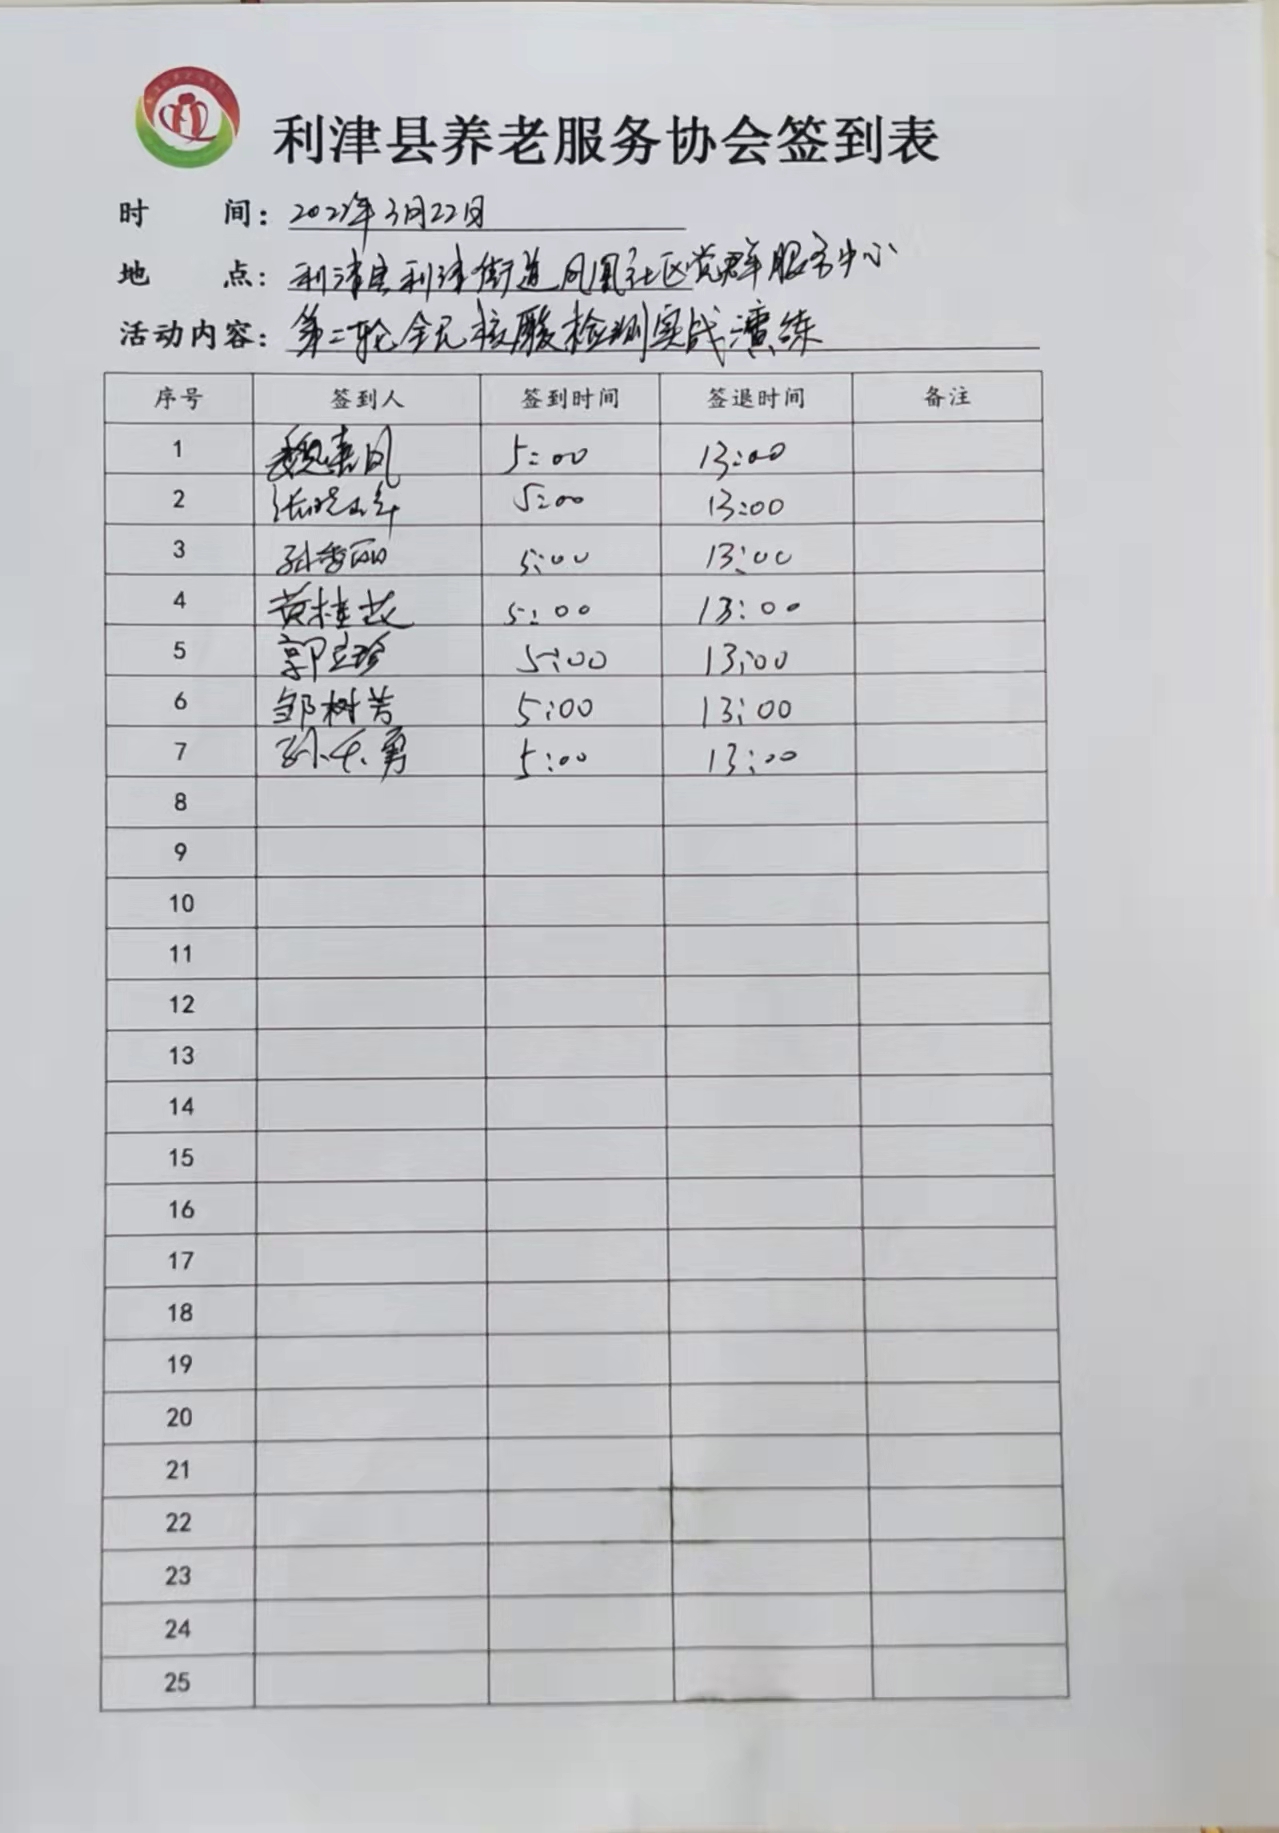 利津县养老服务协会签到表
时 间：2022年3月22日
地 点：利津县利津街道凤凰社区党群服务中心
活动内容：第二轮全员核酸检测实战演练
序号 签到人 签到时间 签退时间 备注
1 魏秦凤 5:00 13:00
2 张 5:00 13:00
3 孙秀丽 5:00 13:00
4 黄桂芝 5:00 13:00
5 郭立珍 5:00 13:00
6 邹树芳 5:00 13:00
7 孙 勇 5:00 13:00
8
9
10
11
12
13
14
15
16
17
18
19
20
21
22
23
24
25